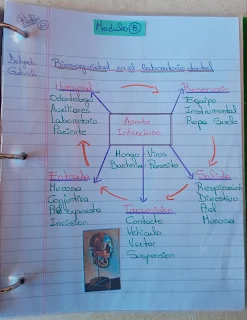 Modulo 5
Delgado
Gabriela
Bioseguridad en el laboratorio dental
Huesped
Odontologo
Auxiliares
Laboratorio
Paciente
Reservorio
Equipo
Instrumental
Ropa Suelo
Agente
Infeccioso
Hongo Virus
Bacteria Parasito
Entrada
Mucosa
Conjuntiva
Piel expuesta
Incision
Salida
Respiracion
Digestivo
Piel
Mucosa
Transmision
Contacto
Vehiculo
Vector
Suspension